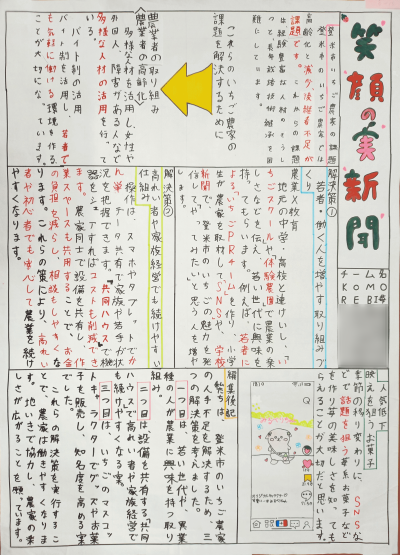 笑顔の実新聞
チーム名
KOMO
REBI
登米市のいちご農家の課題
登米市のいちご農家では
高齢化と減少、後継者不足が
課題です。これらの課題
は経験豊富な人材のそうしつ
って長年栽培技術継承を困
難にしています。
これらのいちご農家の
課題を解決するために
農業者の取り組み
農業者の高齢化
多様な人材を活用し、女性や
外国人、障害がある人など
多様な人材の活用を行って
いる。
バイト制の活用
バイト制を活用し、若者で
も気軽に働ける環境を作る
ことが大切になっています。
解決策①
若者・働く人を増やす取り組みづ
くり
農業×教育
地元の中学・高校と連けいし、い
ちごスクールや体験農園で農業の楽
しさなどを伝え、若い世代に興味を
持ってもらいます。例えば、若者に
よるいちごPRチームを作り、小学
生が農家を取材してSNSや、学校
新聞で、登米市のいちごの魅力を発
信して「やってみたい」と思う人を増や
します。
解決策②
高れい者や家族経営でも続けやすい
仕組み
操作は、スマホやタブレットでか
んたん、チーム共有で家族や若手が状
況を把握できます。「共同ハウス」や機
器をシェアすればコストも削減でき
ます。農家同士で設備を共有し、作
業スペースも共用することで、お金
の負担を減らし、相談もしやすくな
ります。これらの策により、高れい
者や初心者でも安心して農業を続け
やすくなります。
人気低下
映えを狙うお菓子
季節の移り変わりに、SNSな
どで話題を狙う華系お菓子など
を作り苺の美味しさを知っても
らえることが大切だと思います。
編集後記
私たちは、登米市のいちご農家
の人手不足を解決するため、三
つの解決策を考えました。
一つ目は、若い世代や、異業
種の人が農業に興味を持つ取り
組み。
二つ目は、設備を共有する「共同
ハウス」で高れい者や家族経営で
も続けやすくなる案。
三つ目は、いちごのマスコッ
トキャラクターでグッズやお菓
子を販売し、知名度を高める案
でした。
これらの解決策を実行するこ
とで、農家は働きやすくなりま
す。地いきで協力し、農家の楽
しさが広がることを願っています。